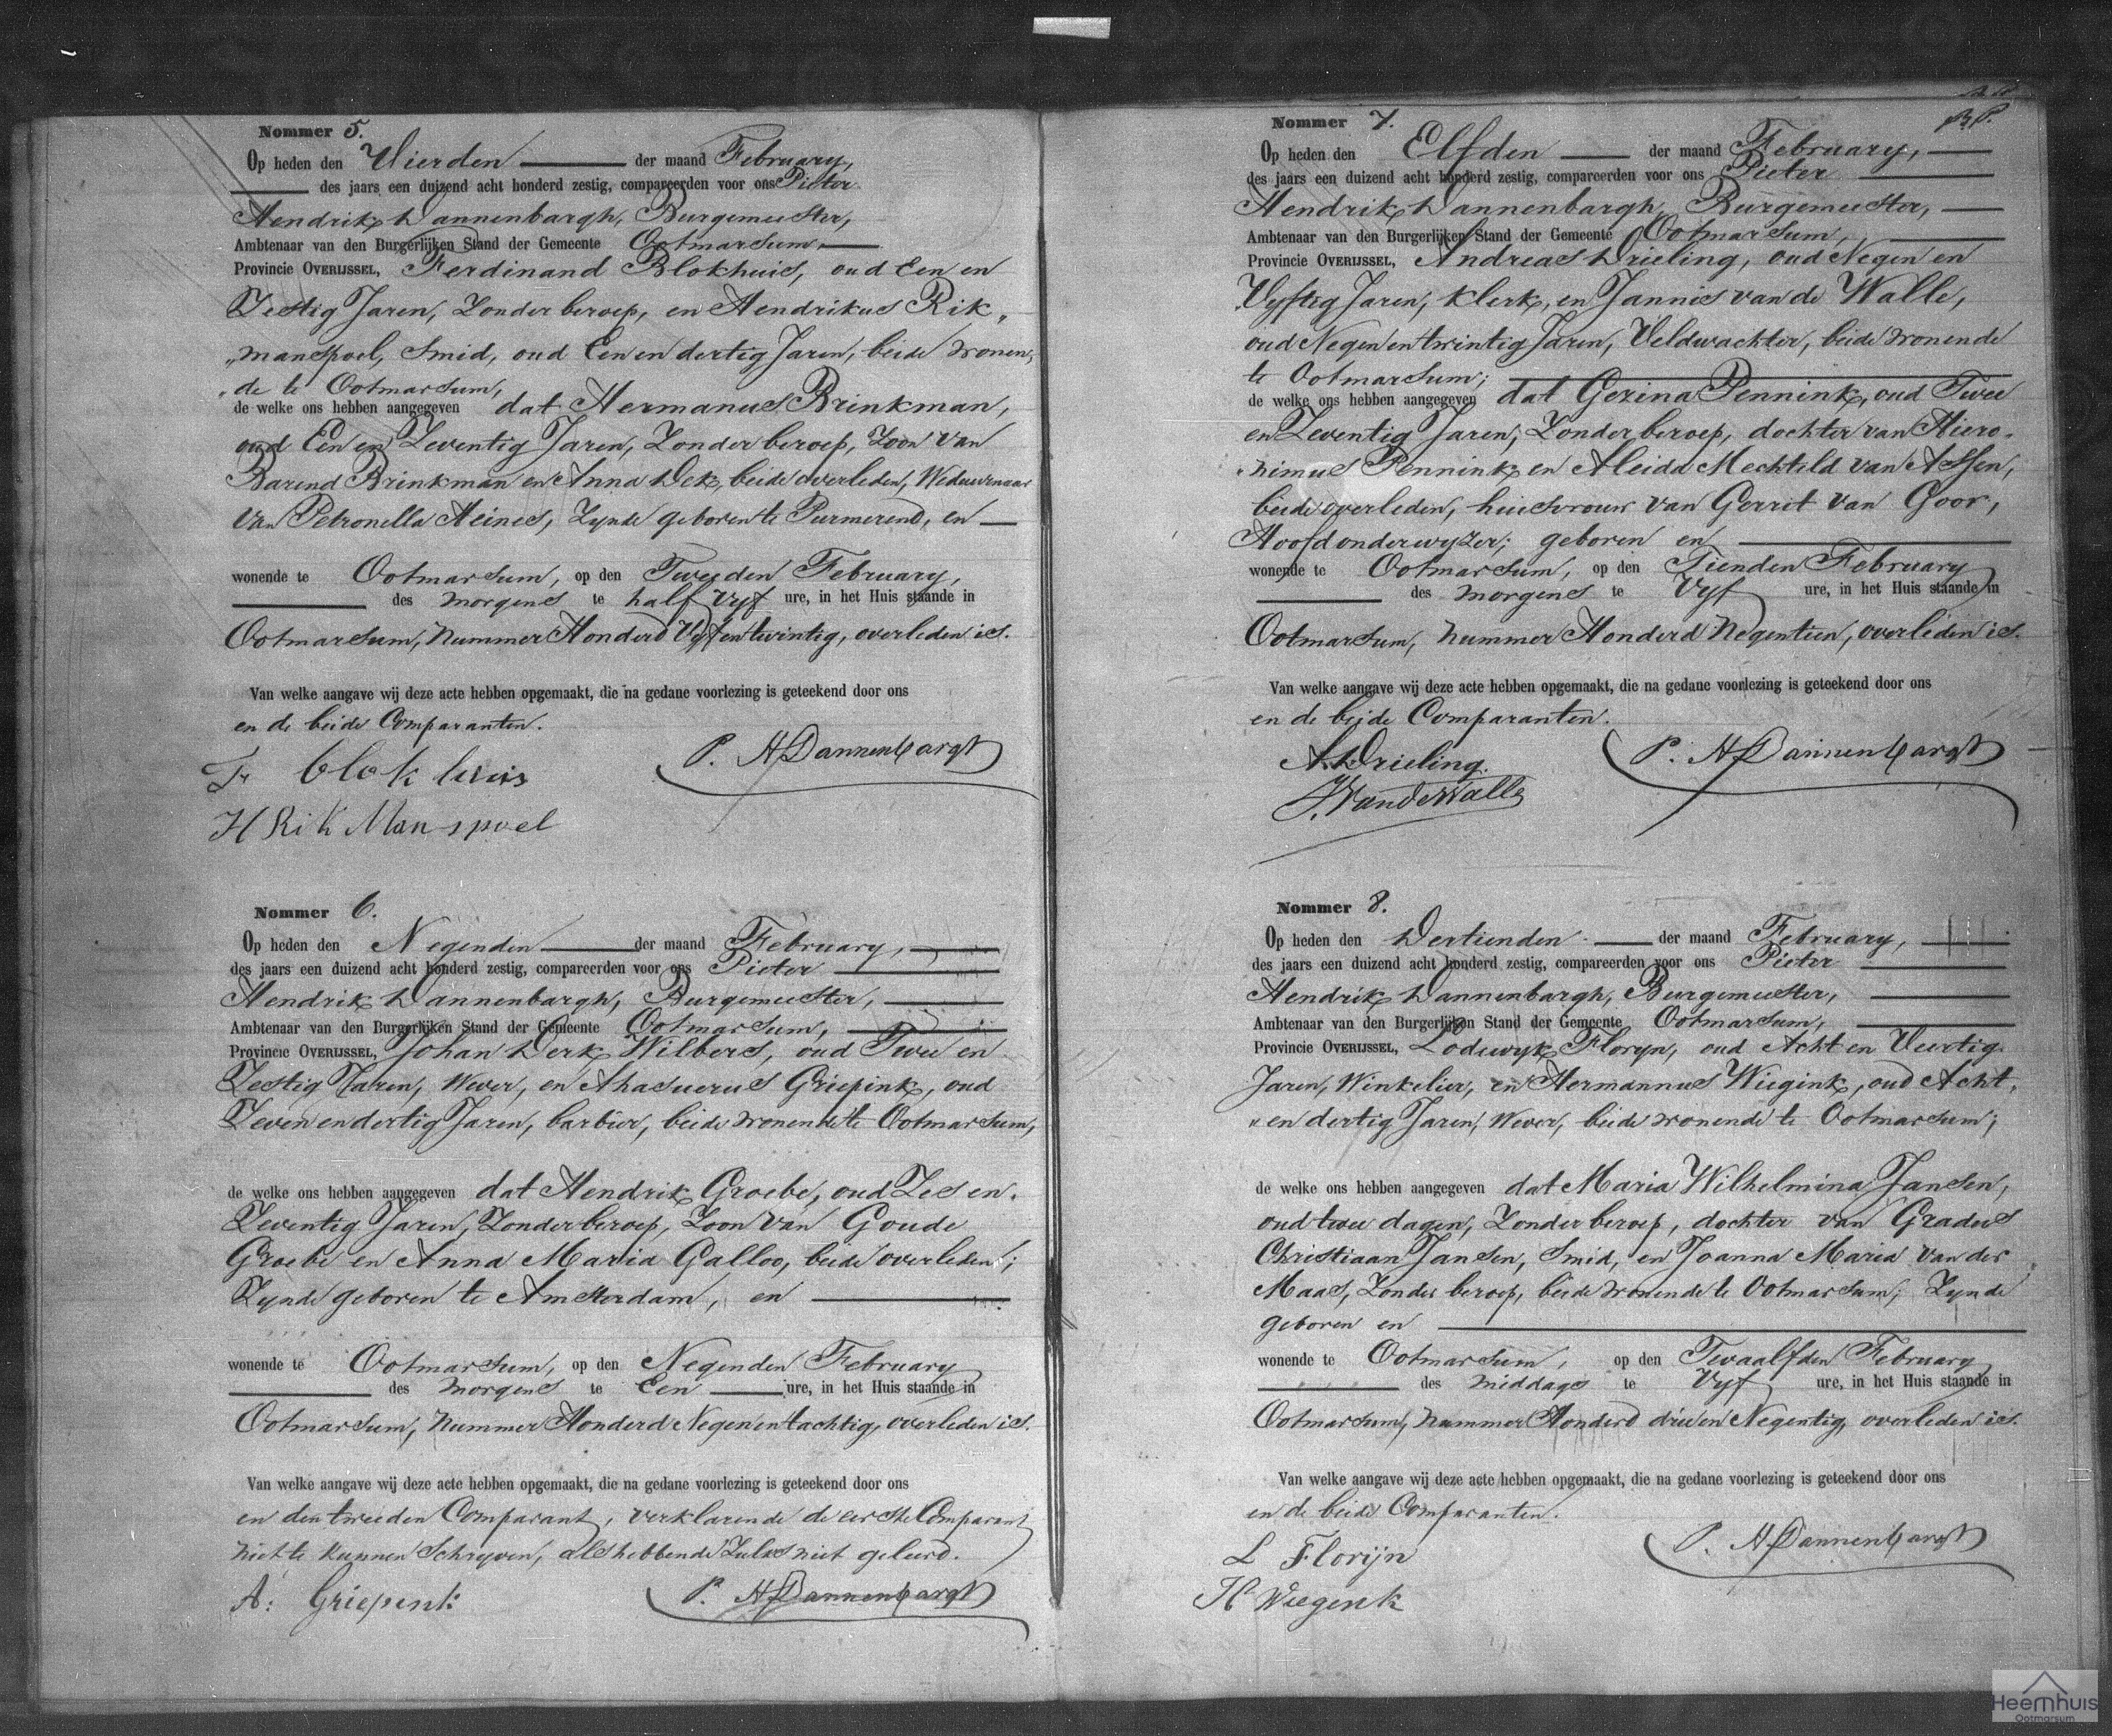 Nommer 5.
Op heden den Vierden der maand February,
des jaars een duizend acht honderd zestig, compareerden voor ons Pieter
Hendrik Dannenbargh, Burgemeester,
Ambtenaar van den Burgerlijken Stand der Gemeente Ootmarsum,
Provincie OVERIJSSEL, Ferdinand Blokhuis, oud Een en
Zestig Jaren, Zonder beroep, en Hendrikus Rik„
„manspoel, Smid, oud Een en dertig Jaren, beide wonen„
„de te Ootmarsum,
de welke ons hebben aangegeven dat Hermanus Brinkman,
oud Een en Zeventig Jaren, Zonder beroep, Zoon van
Barend Brinkman en Anna Dek, beide overleden, Weduwenaar
van Petronella Heines, Zynde geboren te Purmerend, en
wonende te Ootmarsum, op den Tweeden February,
des morgens te half Vyf ure, in het Huis staande in
Ootmarsum, Nummer Honderd Vyf en twintig, overleden is.
Van welke aangave wij deze acte hebben opgemaakt, die na gedane voorlezing is geteekend door ons
en de beide Comparanten.
P. H Dannenbargh
Fr blok huis
H Rik Man spoel
Nommer 6.
Op heden den Negenden der maand February,
des jaars een duizend acht honderd zestig, compareerden voor ons Pieter
Hendrik Dannenbargh, Burgemeester,
Ambtenaar van den Burgerlijken Stand der Gemeente Ootmarsum,
Provincie OVERIJSSEL, Johan Derk Wilbers, oud Twee en
Zestig Jaren, Wever, en Ahasuerus Griepink, oud
Zeven en dertig Jaren, barbier, beide wonende te Ootmarsum,
de welke ons hebben aangegeven dat Hendrik Groebe, oud Zes en
Zeventig Jaren, Zonder beroep, Zoon van Goude
Groebe en Anna Maria Galloo, beide overleden;
Zynde geboren te Amsterdam, en
wonende te Ootmarsum, op den Negenden February
des morgens te Een ure, in het Huis staande in
Ootmarsum, Nummer Honderd Negen en tachtig, overleden is.
Van welke aangave wij deze acte hebben opgemaakt, die na gedane voorlezing is geteekend door ons
en den tweeden Comparant, verklarende de eerste Comparant
niet te kunnen Schryven, als hebbende Zulks niet geleerd.
A: Griepenk
P. H Dannenbargh
Nommer 7.
Op heden den Elfden der maand February,
des jaars een duizend acht honderd zestig, compareerden voor ons Pieter
Hendrik Dannenbargh, Burgemeester,
Ambtenaar van den Burgerlijken Stand der Gemeente Ootmarsum,
Provincie OVERIJSSEL, Andreas Drieling, oud Negen en
Vyftig Jaren, Klerk, en Jannis van de Walle,
oud Negen en twintig Jaren, Veldwachter, beide wonende
te Ootmarsum;
de welke ons hebben aangegeven dat Gezina Pennink, oud Twee
en Zeventig Jaren, Zonder beroep, dochter van Hiero„
„nimus Pennink en Aleida Mechteld van Assen,
beide overleden, huisvrouw van Gerrit van Goor,
Hoofdonderwyzer; geboren en
wonende te Ootmarsum, op den Tienden February
des morgens te Vyf ure, in het Huis staande in
Ootmarsum, Nummer Honderd Negentien, overleden is.
Van welke aangave wij deze acte hebben opgemaakt, die na gedane voorlezing is geteekend door ons
en de beide Comparanten.
P. H Dannenbargh
A. Drieling.
J. van de Walle
Nommer 8.
Op heden den Dertienden der maand February,
des jaars een duizend acht honderd zestig, compareerden voor ons Pieter
Hendrik Dannenbargh, Burgemeester,
Ambtenaar van den Burgerlijken Stand der Gemeente Ootmarsum,
Provincie OVERIJSSEL, Lodewyk Floryn, oud Acht en Veertig
Jaren, Winkelier, en Hermannus Wiegink, oud Acht„
„en dertig Jaren, Wever, beide wonende te Ootmarsum;
de welke ons hebben aangegeven dat Maria Wilhelmina Jansen,
oud twee dagen, Zonder beroep, dochter van Gradus
Christiaan Jansen, Smid, en Joanna Maria van der
Maas, Zonder beroep, beide wonende te Ootmarsum; Zynde
geboren en
wonende te Ootmarsum, op den Twaalfden February
des middags te Vyf ure, in het Huis staande in
Ootmarsum, Nummer Honderd drie en Negentig, overleden is.
Van welke aangave wij deze acte hebben opgemaakt, die na gedane voorlezing is geteekend door ons
en de beide Comparanten.
P. H Dannenbargh
L Florijn
H Wiegenk
Heemhuis
Ootmarsum